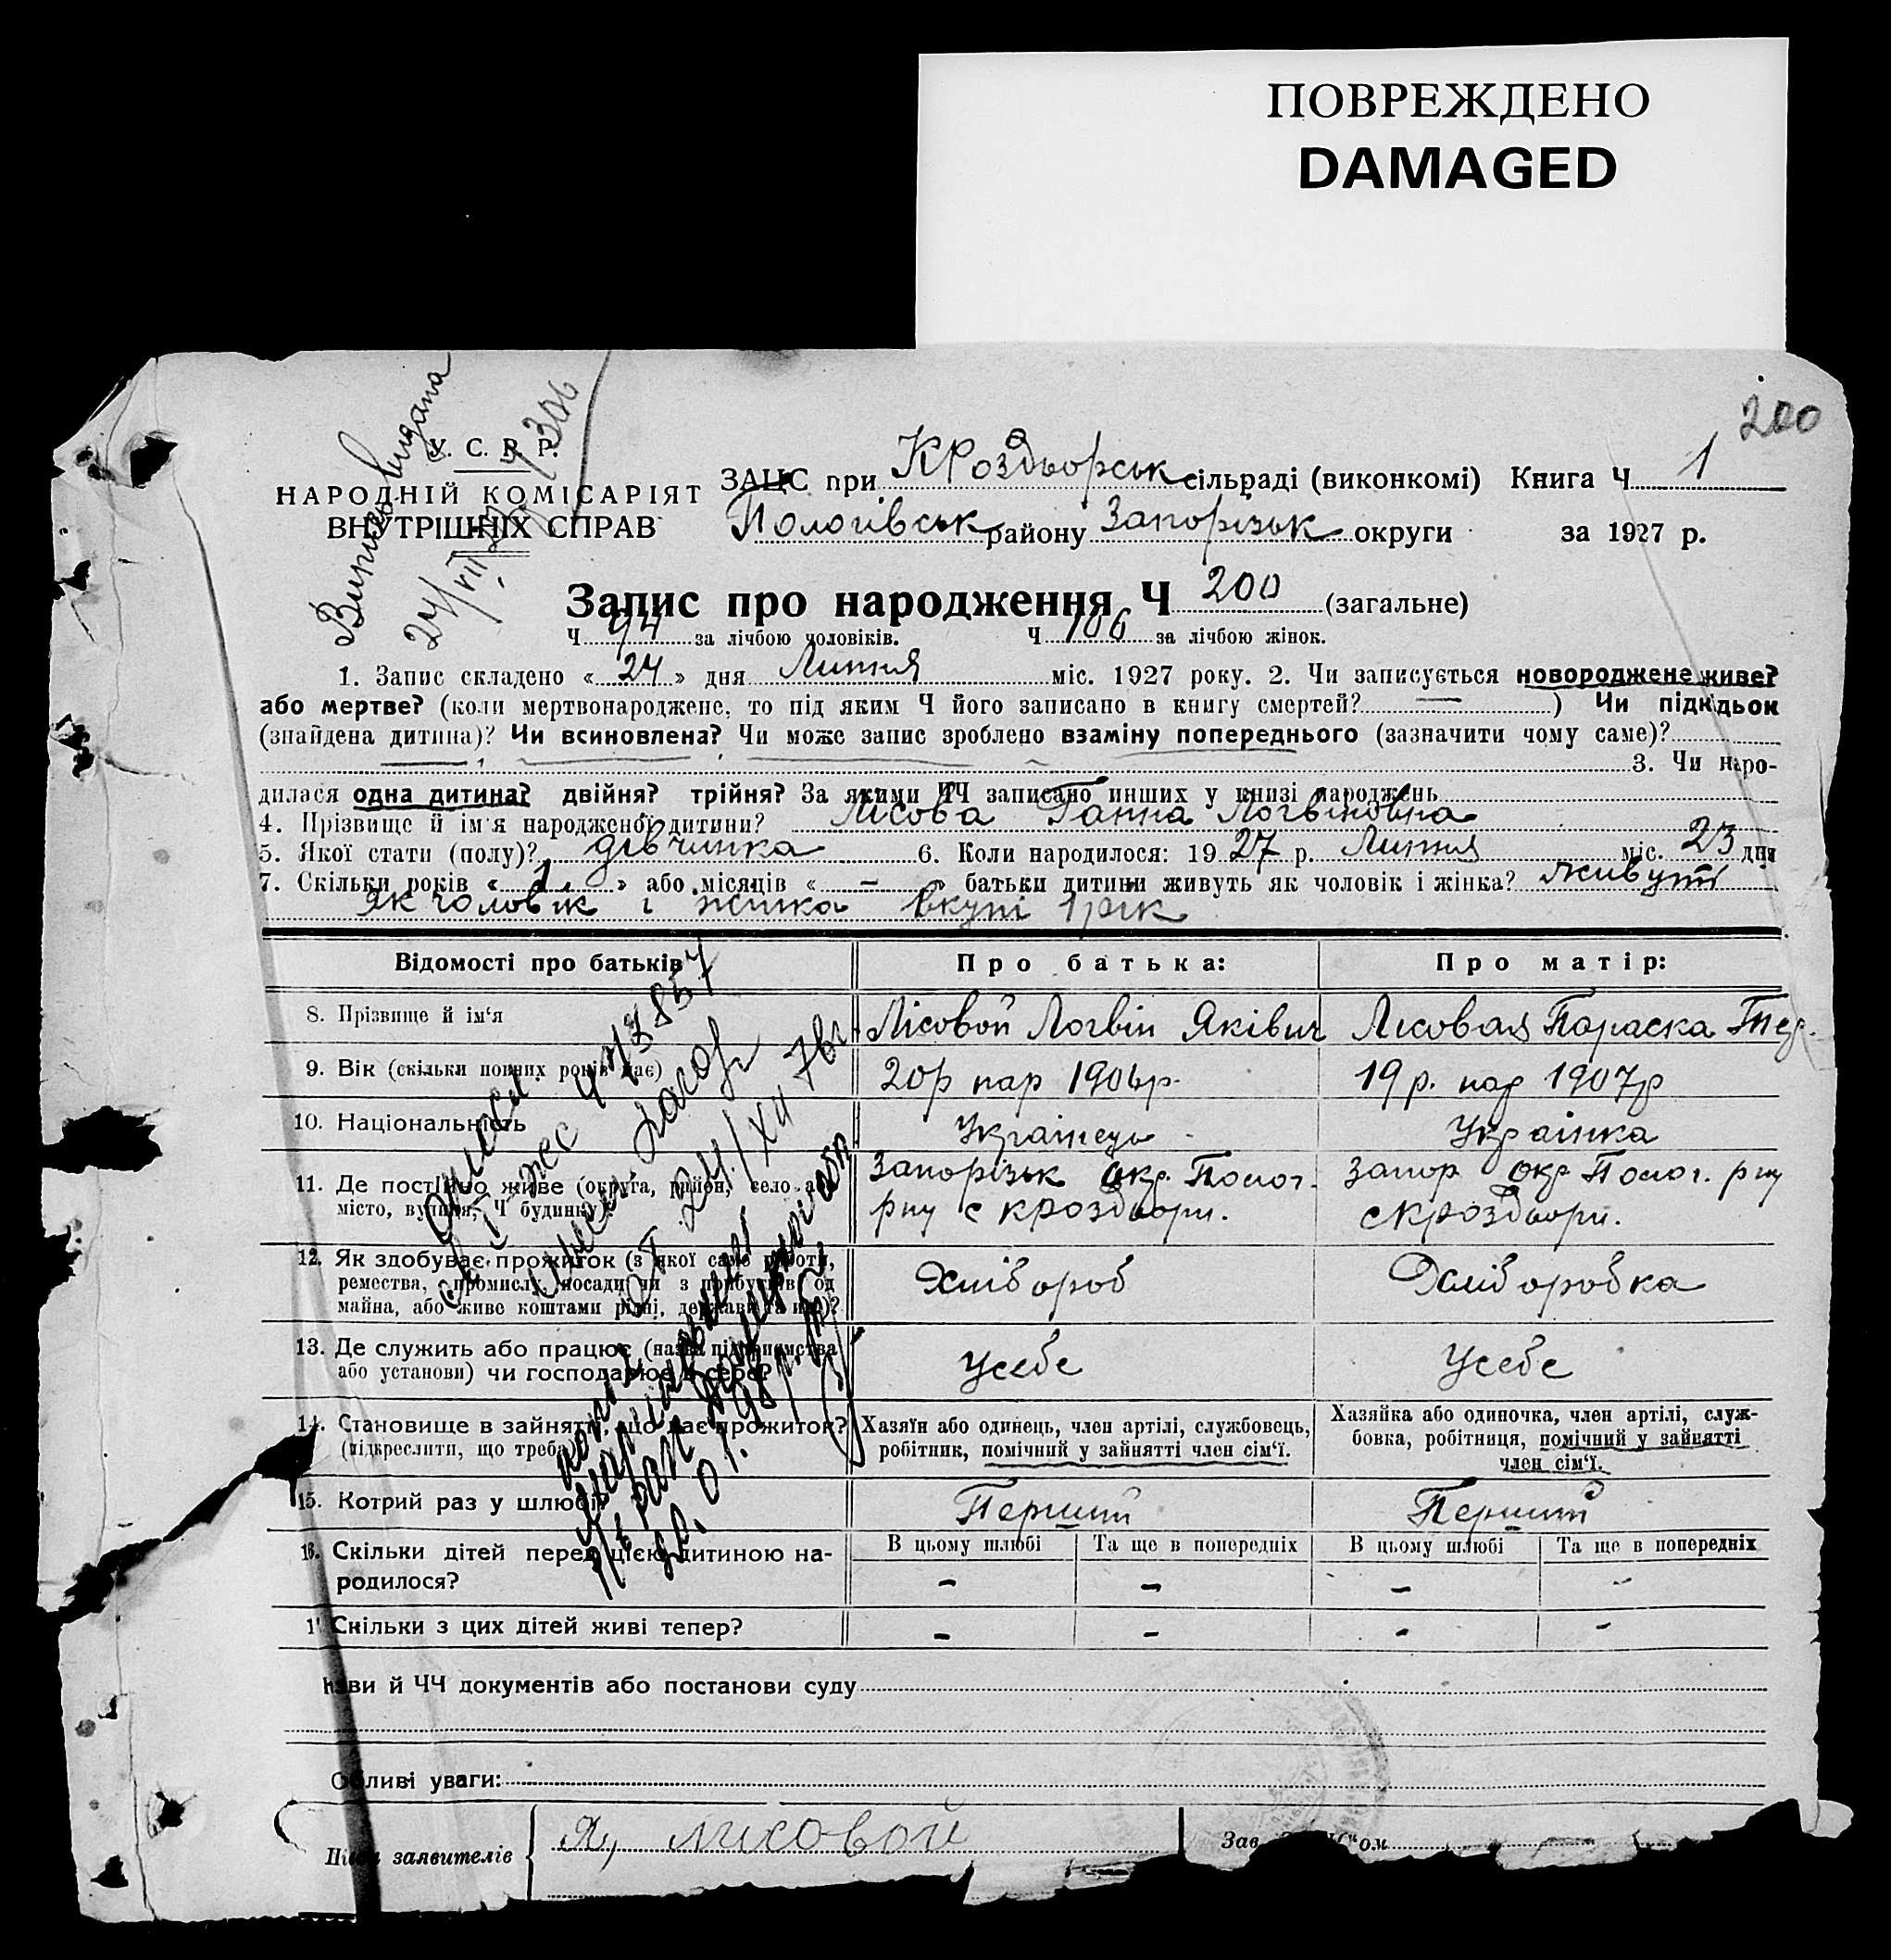 ПОВРЕЖДЕНО
DAMAGED
200
Виписка видана
24/VII
У. С. Р. Р.
НАРОДНІЙ КОМІСАРІЯТ
ВНУТРІШНІХ СПРАВ
ЗАЦС при КРоздворськ сільраді (виконкомі) Книга Ч 1
Пологівськ району Запорізьк округи за 1927 р.
Запис про народження Ч 200 (загальне)
Ч 94 за лічбою чоловіків. Ч 106 за лічбою жінок.
1. Запис складено « 24 » дня Липня міс. 1927 року. 2. Чи записується новороджене живе?
або мертве? (коли мертвонароджене, то під яким Ч його записано в книгу смертей? — ) Чи підкідьок
(знайдена дитина)? Чи всиновлена? Чи може запис зроблено взаміну попереднього (зазначити чому саме)?
3. Чи наро-
дилася одна дитина? двійня? трійня? За якими ЧЧ записано инших у книзі народжень
4. Прізвище й ім'я народженої дитини? Лісова Ганна Логвіновна
5. Якої стати (полу)? дівчинка 6. Коли народилося: 19 27 р. Липня міс. 23 дня
7. Скільки років « 1 » або місяців « — » батьки дитини живуть як чоловік і жінка? живуть
як чоловік і жінка вкупі 1 рік
Відомості про батьків Про батька: Про матір:
8. Прізвище й ім‘я Лісовой Логвін Яківич Лісовая Параска
9. Вік (скільки повних років має) 20р нар 1906р. 19 р. нар 1907р
10. Національність Українець Українка
11. Де постійно живе (округа, район, село або
місто, вулиця, Ч будинку)?
Запорізьк окр. Полог.
рну с кроздвори.
Запор окр Полог. рну
с кроздвори.
12. Як здобуває прожиток (з якої саме роботи,
ремества, промислу, посади чи з прибутків од
майна, або живе коштами рідні, держави та ин.)?
Хлібороб Хліборобка
13. Де служить або працює (назва підприємства
або установи) чи господарює у себе?
Усебе Усебе
14. Становище в зайнятті, що дає прожиток?
(підкреслити, що треба)
Хазяїн або одинець, член артілі, службовець,
робітник, помічний у зайнятті член сім‘ї.
Хазяйка або одиночка, член артілі, служ-
бовка, робітниця, помічний у зайнятті
член сім‘ї.
15. Котрий раз у шлюбі? Перший Перший
16. Скільки дітей перед цією дитиною на-
родилося?
В цьому шлюбі Та ще в попередніх В цьому шлюбі Та ще в попередніх
– – – –
Скільки з цих дітей живі тепер? – – – –
й ЧЧ документів або постанови суду
Обливі уваги:
заявителів Я, лисовой
Зав